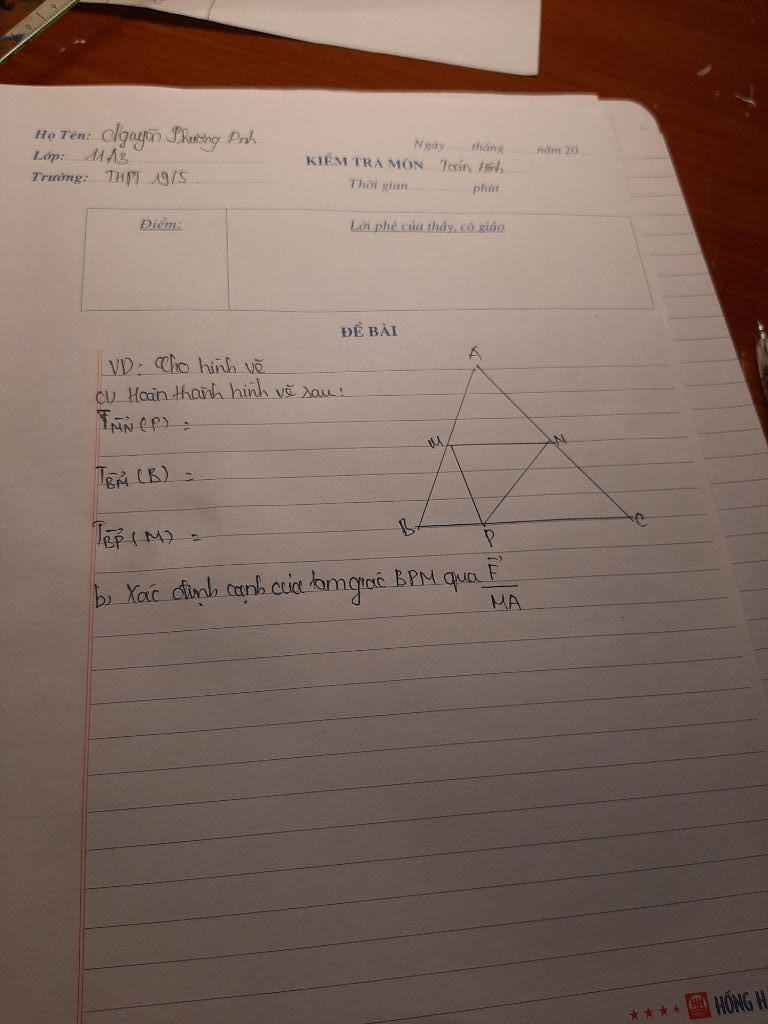 Họ Tên: Nguyễn Phương Anh
Lớp: 11A3
Trường: THPT 19/5
Ngày tháng năm 20
KIỂM TRA MÔN Toán Hình
Thời gian phút
Điểm:
Lời phê của thầy, cô giáo
ĐỀ BÀI
VD: Cho hình vẽ
a) Hoàn thành hình vẽ sau:
T_MN→ (P) =
T_BM→ (B) =
T_BP→ (M) =
b, Xác định cạnh của tam giác BPM qua F→
MA
A
M
N
B
P
C
HH
HỒNG H